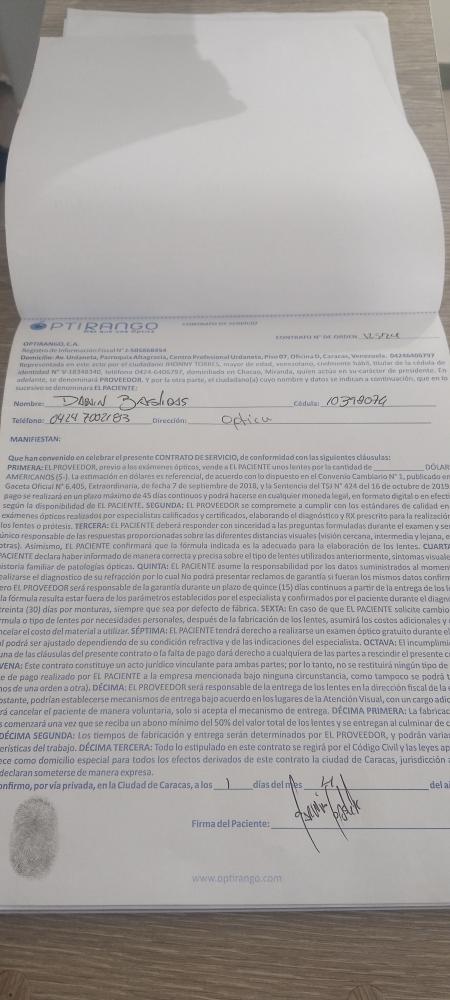 OPTIRANGO
Más que una Óptica
CONTRATO DE SERVICIO
CONTRATO N° DE ORDEN
OPTIRANGO, C.A.
Registro de Información Fiscal N°
Domicilio: Av. Urdaneta, Parroquia Altagracia, Centro Profesional Urdaneta, Piso 07, Oficina D, Caracas, Venezuela. 04246406797
Representada en este acto por el ciudadano JHONNY TORRES, mayor de edad, venezolano, civilmente hábil, titular de la cédula de
identidad N° V-18348340, teléfono 0424-6406797, domiciliado en Chacao, Miranda, quien actúa en su carácter de presidente. En
adelante, se denominará PROVEEDOR. Y por la otra parte, el ciudadano(a) cuyo nombre y datos se indican a continuación, que en lo
sucesivo se denominará EL PACIENTE:
Nombre: Cédula: 10398079
Teléfono: Dirección: Optica
MANIFIESTAN:
Que han convenido en celebrar el presente CONTRATO DE SERVICIO, de conformidad con las siguientes cláusulas:
PRIMERA: EL PROVEEDOR, previo a los exámenes ópticos, vende a EL PACIENTE unos lentes por la cantidad de DÓLAR
AMERICANOS ($-). La estimación en dólares es referencial, de acuerdo con lo dispuesto en el Convenio Cambiario N° 1, publicado en
Gaceta Oficial N° 6.405, Extraordinaria, de fecha 7 de septiembre de 2018, y la Sentencia del TSJ N° 424 del 16 de octubre de 2019
pago se realizará en un plazo máximo de 45 días continuos y podrá hacerse en cualquier moneda legal, en formato digital o en efecti
según la disponibilidad de EL PACIENTE. SEGUNDA: EL PROVEEDOR se compromete a cumplir con los estándares de calidad en
exámenes ópticos realizados por especialistas calificados y certificados, elaborando el diagnóstico y RX prescrito para la realización
los lentes o prótesis. TERCERA: EL PACIENTE deberá responder con sinceridad a las preguntas formuladas durante el examen y ser
único responsable de las respuestas proporcionadas sobre las diferentes distancias visuales (visión cercana, intermedia y lejana, e
otras). Asimismo, EL PACIENTE confirmará que la fórmula indicada es la adecuada para la elaboración de los lentes. CUARTA
PACIENTE declara haber informado de manera correcta y precisa sobre el tipo de lentes utilizados anteriormente, síntomas visuale
historia familiar de patologías ópticas. QUINTA: EL PACIENTE asume la responsabilidad por los datos suministrados al momen
realizarse el diagnostico de su refracción por lo cual No podrá presentar reclamos de garantía si fueran los mismos datos confirm
ero EL PROVEEDOR será responsable de la garantía durante un plazo de quince (15) días continuos a partir de la entrega de los l
la fórmula resulta estar fuera de los parámetros establecidos por el especialista y confirmados por el paciente durante el diagn
treinta (30) días por monturas, siempre que sea por defecto de fábrica. SEXTA: En caso de que EL PACIENTE solicite cambio
rmula o tipo de lentes por necesidades personales, después de la fabricación de los lentes, asumirá los costos adicionales y
ncelar el costo del material a utilizar. SÉPTIMA: EL PACIENTE tendrá derecho a realizarse un examen óptico gratuito durante el
al podrá ser ajustado dependiendo de su condición refractiva y de las indicaciones del especialista. OCTAVA: El incumplimi
una de las cláusulas del presente contrato o la falta de pago dará derecho a cualquiera de las partes a rescindir el presente c
VENA: Este contrato constituye un acto jurídico vinculante para ambas partes; por lo tanto, no se restituirá ningún tipo de
e de pago realizado por EL PACIENTE a la empresa mencionada bajo ninguna circunstancia, como tampoco se podrá t
nos de una orden a otra). DÉCIMA: EL PROVEEDOR será responsable de la entrega de los lentes en la dirección fiscal de la
stante, podrían establecerse mecanismos de entrega bajo acuerdo en los lugares de la Atención Visual, con un cargo adic
rá cancelar el paciente de manera voluntaria, solo si acepta el mecanismo de entrega. DÉCIMA PRIMERA: La fabricac
s comenzará una vez que se reciba un abono mínimo del 50% del valor total de los lentes y se entregan al culminar de c
DÉCIMA SEGUNDA: Los tiempos de fabricación y entrega serán determinados por EL PROVEEDOR, y podrán varia
erísticas del trabajo. DÉCIMA TERCERA: Todo lo estipulado en este contrato se regirá por el Código Civil y las leyes ap
ece como domicilio especial para todos los efectos derivados de este contrato la ciudad de Caracas, jurisdicción
declaran someterse de manera expresa.
onfirmo, por vía privada, en la Ciudad de Caracas, a los 1 días del mes del a
Firma del Paciente:
www.optirango.com